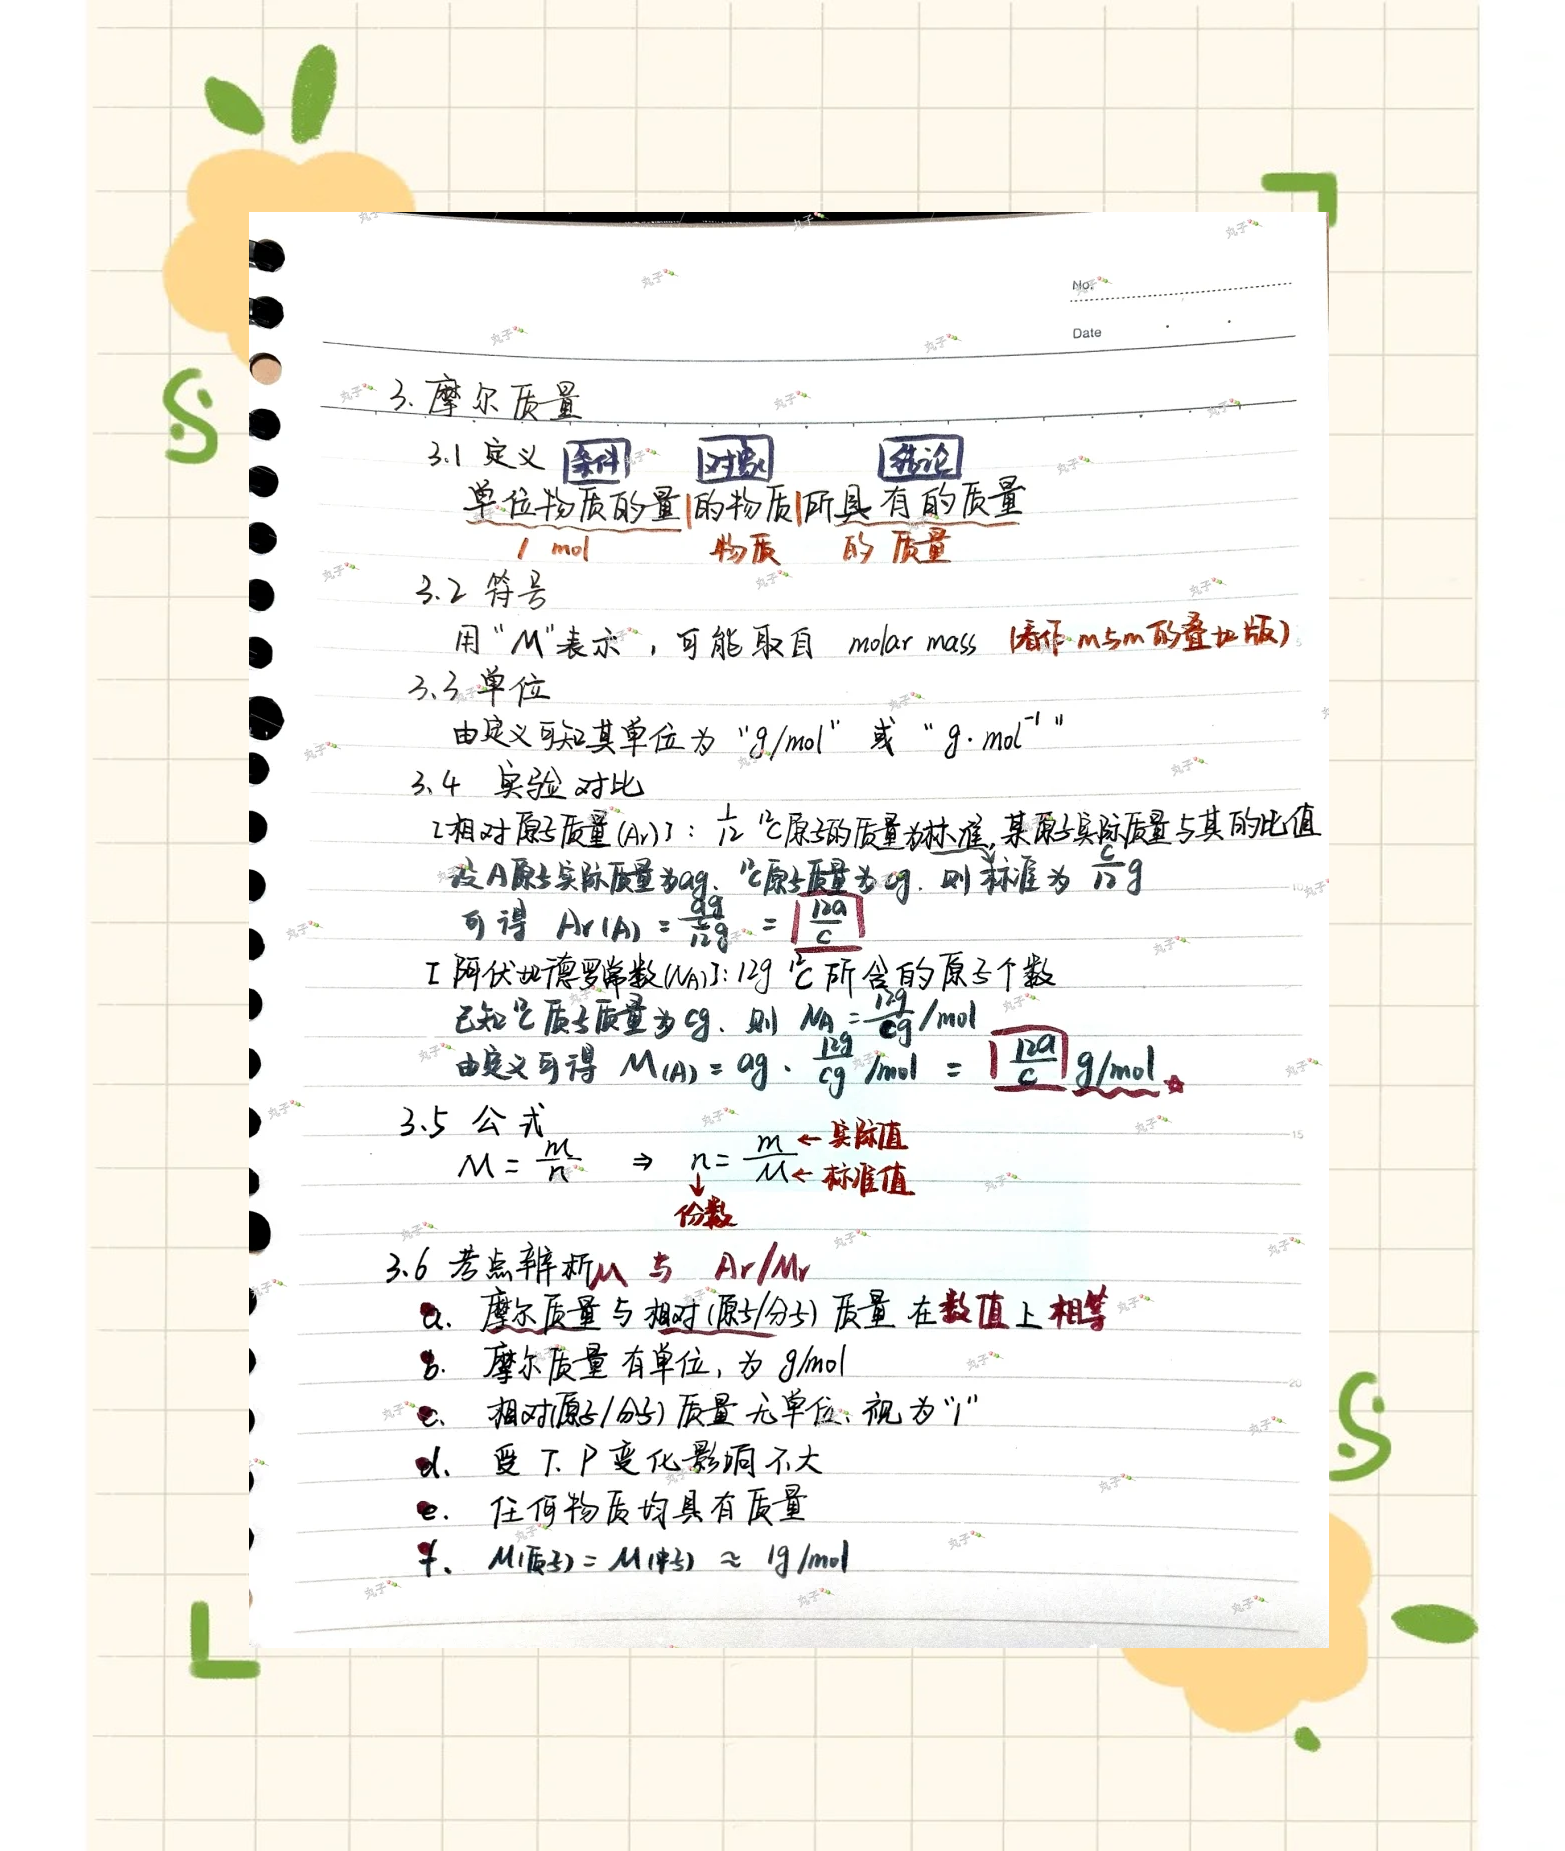 No.
Date
3. 摩尔质量
3.1 定义 条件 对象 结论
单位物质的量|的物质|所具有的质量
1 mol 物质 的 质量
3.2 符号
用“M”表示，可能取自 molar mass (看作m与m的叠加版)
3.3 单位
由定义可知其单位为“g/mol”或“g·mol⁻¹”
3.4 实验对比
[相对原子质量(Ar)]: 1/12 ¹²C原子的质量为标准,某原子实际质量与其的比值
设A原子实际质量为ag、¹²C原子质量为cg. 则标准为 c/12 g
可得 Ar(A) = ag / (c/12 g) = 12a/c
[阿伏加德罗常数(NA)]: 12g ¹²C所含的原子个数
已知¹²C质子质量为cg. 则 NA = 12g/cg /mol
由定义可得 M(A) = ag · 12g/cg /mol = 12a/c g/mol
3.5 公式
M = m/n ⇒ n = m/M ←实际值 ←标准值
份数
3.6 考点辨析 M 与 Ar/Mr
a. 摩尔质量与相对(原子/分子)质量在数值上相等
b. 摩尔质量有单位, 为 g/mol
c. 相对(原子/分子)质量无单位、视为“1”
d. 受 T、P 变化影响不大
e. 任何物质均具有质量
f. M(质子) = M(中子) ≈ 1g/mol
丸子